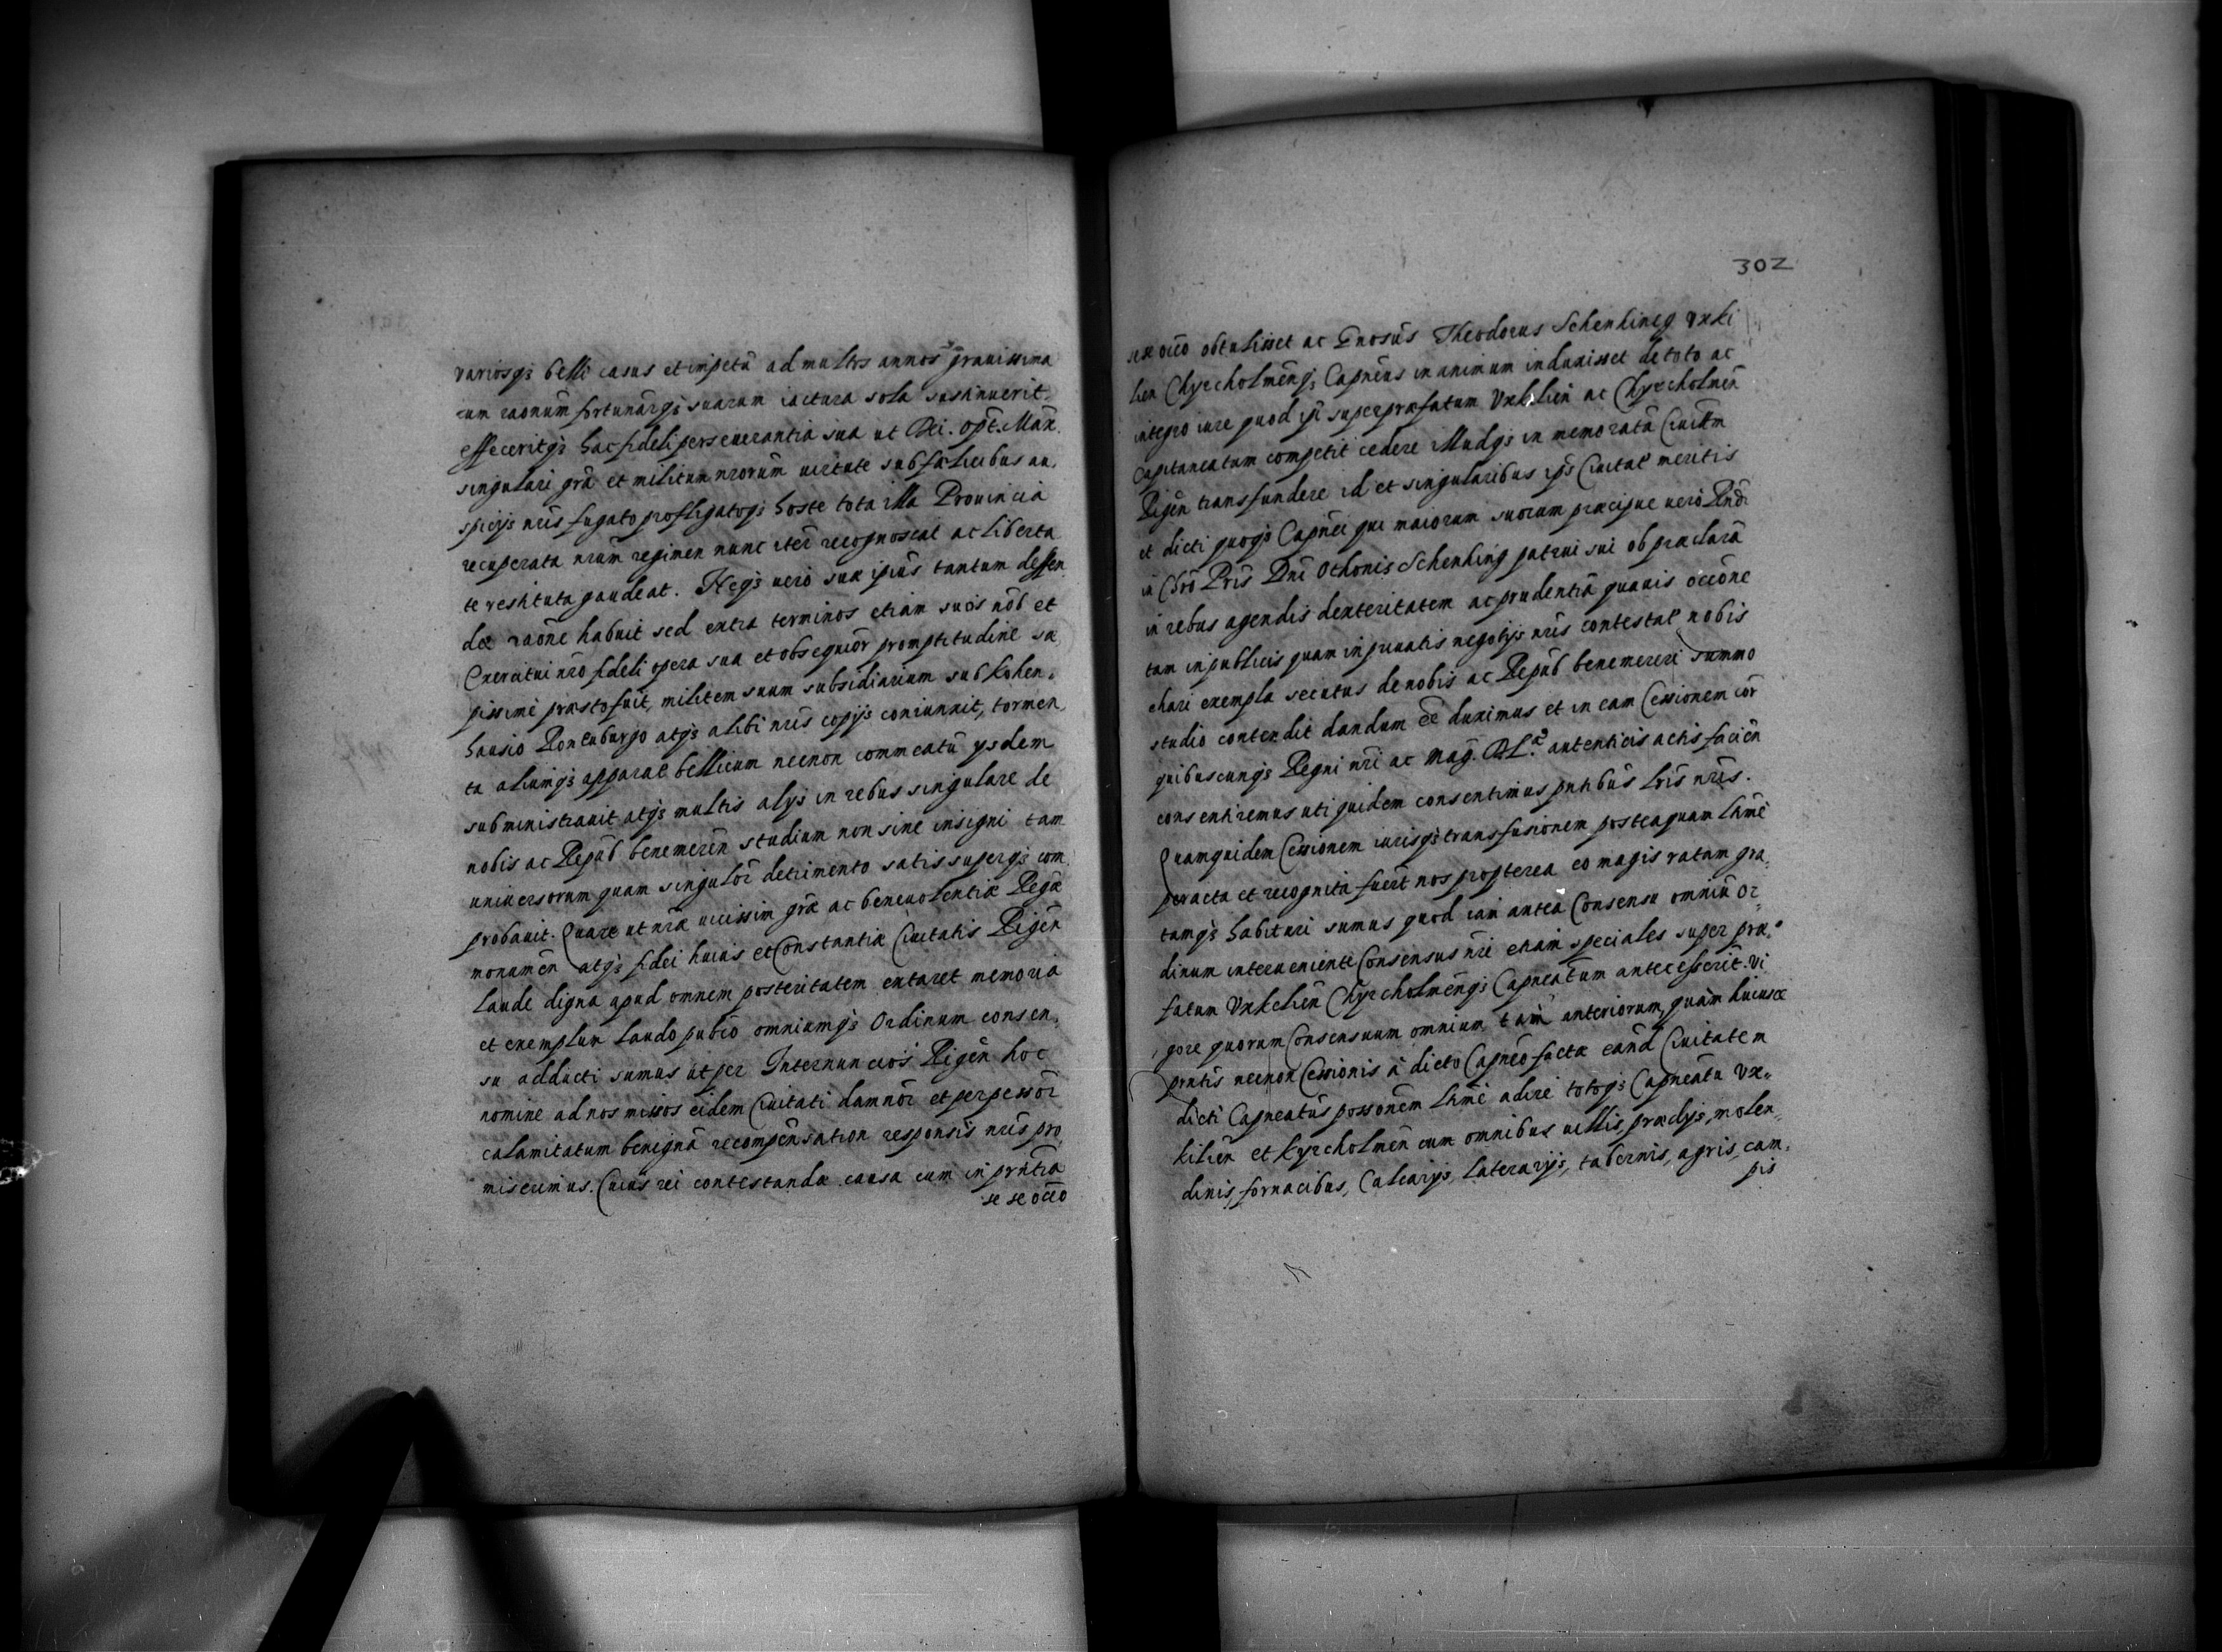 variosq₃ belli casus et impetū ad multos annos grauissima
cum raonūm fortunārq₃ suarum iactura sola sustinuerit.
effeceritq₃ hac fideli perseuerantia sua ut Dei. Opt. Max.
singulari grā et militum nrorum uirtute sub fælicibus au,
spicijs nris fugato profligatoq₃ hoste tota illa Prouincia
recuperata nrūm regimen nunc iter recognoscat ac liberta
te restituta gaudeat. Neq₃ uerò suæ ipius tantum deffen
dæ raōne habuit sed extra terminos etiam suos nōb et
Exercitui nro fideli opera sua et obsequior promptitudine sæ
pissimè præsto fuit, militem suum subsidiarium sub Kohen,
hausio Ronenburgo atq₃ alibi nris copijs coniunxit, tormen
ta aliumq₃ apparat bellicum necnon commeatū ysdem
subministrauit atq₃ multis alijs in rebus singulare de
nobis ac Repūb benemerēn studium non sine insigni tam
uniuersorum quam singulōr detrimento satis superq₃ com
probauit. Quare ut nræ uicissim græ ac beneuolentiæ Regæ
monumēn atq₃ fidei huius et Constantiæ Ciuitatis Rigēn
laude digna apud omnem posteritatem extaret memoria
et exemplum laudo pubco omniumq₃ Ordinum consen,
su adducti sumus ut per Internuncios Rigēn hoc
nomine ad nos missos eidem Ciuitati damnōr et perpessōr
calamitatum benignā recompēnsation responsis nris pro
miserimus. Cuius rei contestandæ causa cum in prntia
se se octō
302
se se octō obtulisset ac Gnosus Theodorus Schenking Vxki
lien Chyrcholmēnq₃ Capneus in animum induxisset de toto ac
integro iure quod ipi super præfatum Vxkilien ac Chyrcholmēn
Capitaneatum competit cedere illudq₃ in memoratā Ciuittm
Rigēn transfundere id et singularibus ips Ciuitat meritis
et dicti quoq₃ Capnei qui maiorum suorum præcipue uerò Rndi
in Chrō Pris Dni Othonis Schenking patrui sui ob præclarā
in rebus agendis dexteritatem ac prudentiā quauis occōne
tam in publicis quam in priuatis negotijs nris contestat nobis
chari exempla secutus de nobis ac Repūb benemereri summo
studio contendit dandum ēē duximus et in eam Cessionem cōr
quibuscunq₃ Regni nri ac Mag. D. L. autenticis actis faciēn
consentiremus uti quidem consentimus pntibūs lris nris.
Quamquidem Cessionem iurisq₃ transfusionem posteaquam lttmē
peracta et recognita fuert nos propterea eo magis ratam gra,
tamq₃ habituri sumus quod iam anteà Consensu omniū Or
dinum interueniente Consensus nri etiam speciales super præ,
fatum Vxkeliēn Chyrcholmēnq₃ Capneatum antecesserit. Vi
gore quorum Consensuum omnium tam anteriorum, quàm huiusce
prntis necnon Cessionis à dicto Capneo factæ eānd Ciuitatem
dicti Capneatūs possonem lttmē adire totoq₃ Capneatū Vx,
kiliēn et Kyrcholmēn cum omnibus uillis, prædijs, molen
dinis, fornacibus, Calcarijs, laterarijs, tabernis, agris, cam,
pis